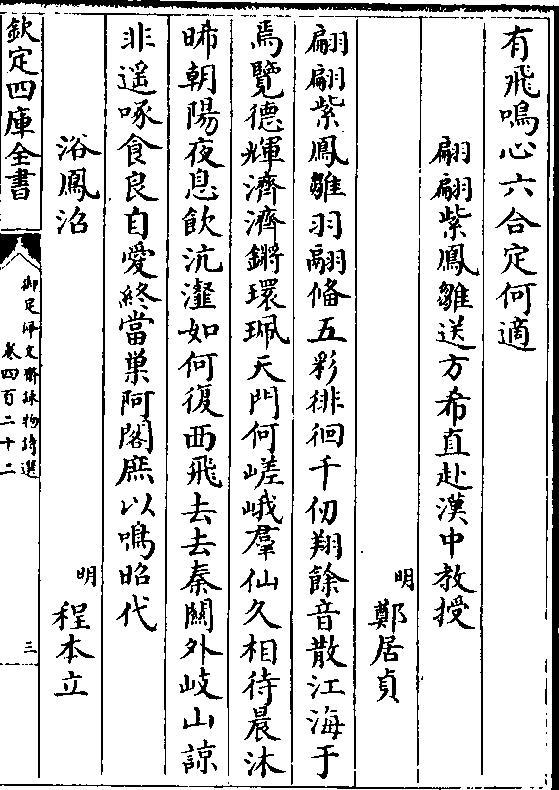 有飛鳴心六合定何適
翩翩紫鳳雛送方希直赴漢中教授
明鄭居貞
翩翩紫鳳雛羽翮備五彩徘徊千仞翔餘音散江海于
焉覽德輝濟濟鏘環珮天門何嵯峨羣仙久相待晨沐
晞朝陽夜息飲沆瀣如何復西飛去去秦關外岐山諒
非遥啄食良自愛終當巢阿閣庶以鳴昭代
浴鳳沼
明程本立
欽定四庫全書
御定佩文齋詠物詩選
卷四百二十二
三